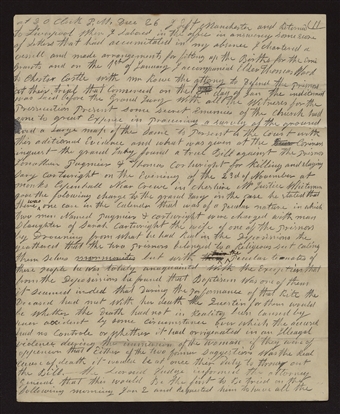 at 3 O Clock P.M. Dec 26 I left Manchester and returned
to Liverpool when I Labored in the office in answering
of letters that had accumulated in my absence I chartered a
vessel and made arrangements for fitting up the Births for the emi
grants and on the 1st of January I accompanied Elder Thomas Ward
to Chester Castle with Mr the attorny to Defend the prisoners
at their trial that convened on that day of Jan the
was laid before the grand Jury with all the Witnesses for the
Prosecution present some several members of the church had
gone to great Expense in procuring a survey of the ground
and a large map of the same to present to the Court with
their additional Evidence and what was given at the Coroners
inquest the grand Jury found a true Bill against the Prisoners
Jonathan Pugmire & Thomas Cartwright for Killing and slaying
Sarah Cartwright on the Evening of the 23rd of November at
Monks Coppenhall Near Crewe in Cheshire Mr Justice Wightman
gave the following charge to the grand Jury on the case he stated that
there was one case in the Calendar that was of a Peculiar nature in which
two men named Pugmire & Cartwright was charged with man
Slaughter of Sarah Cartwright the wife of one of the Prisoners
by Drowning from what he had read in the Depositions he
gathered that the two prisoners belonged to a Religious sect calling
them selves but with the peculiar tenents of
these people he was totally unacquainted with the Exception that
from the Depositions he found that Baptism was one of them
it seemed indeed that During the performance of that Rite the
Deceased had met with her Death the Question for them would
be whether the Death had not in Reality been caused by
mere accident by some circumstance over which the accused
had no controle or whether it had originated in an Illegal
violence during the immersion of the woman if they were of
oppinion that Either of the two former Suggestions was the
cause of death it would be at once their duty to throw out
the Bill. The Learned Judge informed the attorney
General that this would be the first to be tried on the
following morning Jan 2 and requested him to have all the